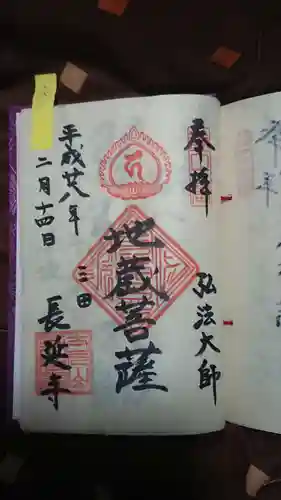 奉拝
弘法大師
地蔵菩薩
三田
長延寺
平成廿八年
二月十四日